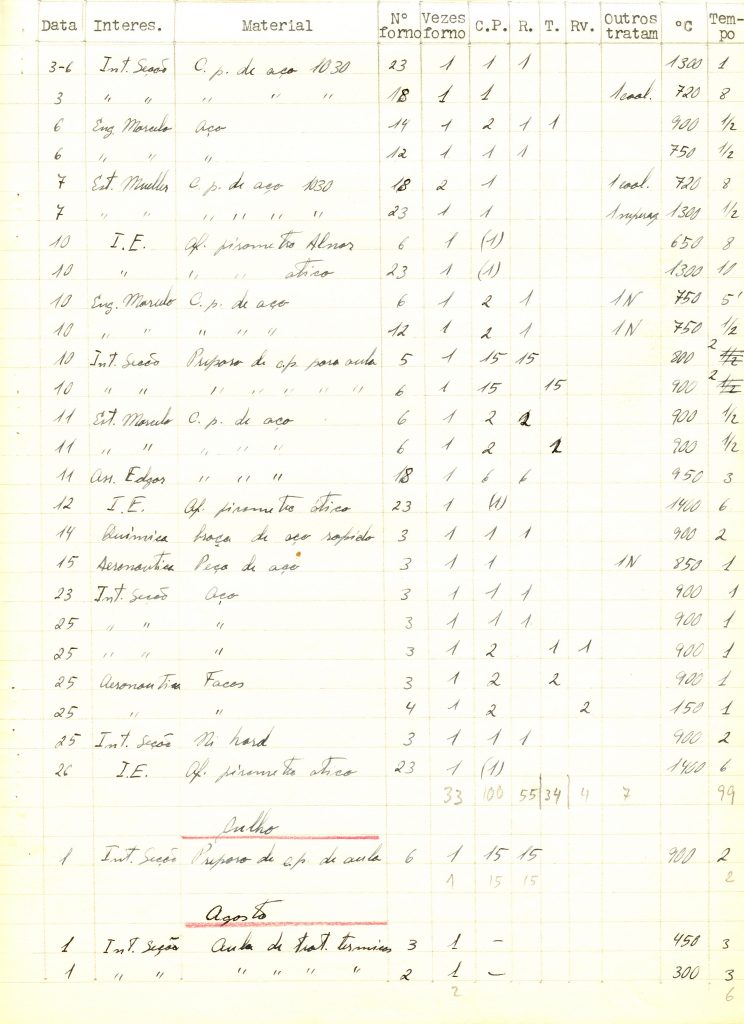 Data Interes. Material Nº forno Vezes forno C.P. R. T. Rv. Outros tratam ºC Tempo
3-6 Int. Secção C. p. de aço 1030 23 1 1 1 1300 1
3 " " " " " 18 1 1 1 coal. 720 8
6 Eng. Marcelo Aço 14 1 2 1 1 900 1/2
6 " " " 12 1 1 1 750 1/2
7 Est. Mueller C. p. de aço 1030 18 2 1 1 coal. 720 8
7 " " " " " " 23 1 1 1 1300 1/2
10 I.E. Af. pirometro Alnor 6 1 (1) 650 8
10 " " " otico 23 1 (1) 1300 10
10 Eng. Marcelo C. p. de aço 6 1 2 1 1N 750 5'
10 " " " " " 12 1 2 1 1N 750 1/2
10 Int. Secão Preparo de c.p. para aula 5 1 15 15 800 2
10 " " " " " " " " 6 1 15 15 900 2
11 Est. Marcelo C. p. de aço 6 1 2 2 900 1/2
11 " " " " " 6 1 2 2 900 1/2
11 Ass. Edgar " " " 18 1 6 6 950 3
12 I.E. Af. pirometro otico 23 1 (1) 1400 6
14 Química broca de aço rapido 3 1 1 1 900 2
15 Aeronautica Peça de aço 3 1 1 1N 850 1
23 Int. Secão Aço 3 1 1 1 900 1
25 " " " 3 1 1 1 900 1
25 " " " 3 1 2 1 1 900 1
25 Aeronautica Facas 3 1 2 2 900 1
25 " " 4 1 2 2 150 1
25 Int. Seção Ni hard 3 1 1 1 900 2
26 I.E. Af. pirometro otico 23 1 (1) 1400 6
33 100 55 34 4 7 99
Julho
1 Int. Seção Preparo de c.p. de aula 6 1 15 15 900 2
1 15 15 2
Agosto
1 Int. Seção Aula de trat. termicos 3 1 - 450 3
1 " " " " " " 2 1 - 300 3
2 6